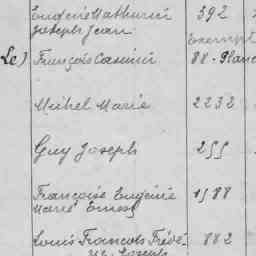 Eugène Mathurin 592
Joseph Jean
Exempt
Le) François Casimir 88 - Planc
Michel Marie 2232
Guy Joseph 255
Françoise Eugénie 1588
Marie Ernest
Louis François Frédé- 882
Joseph